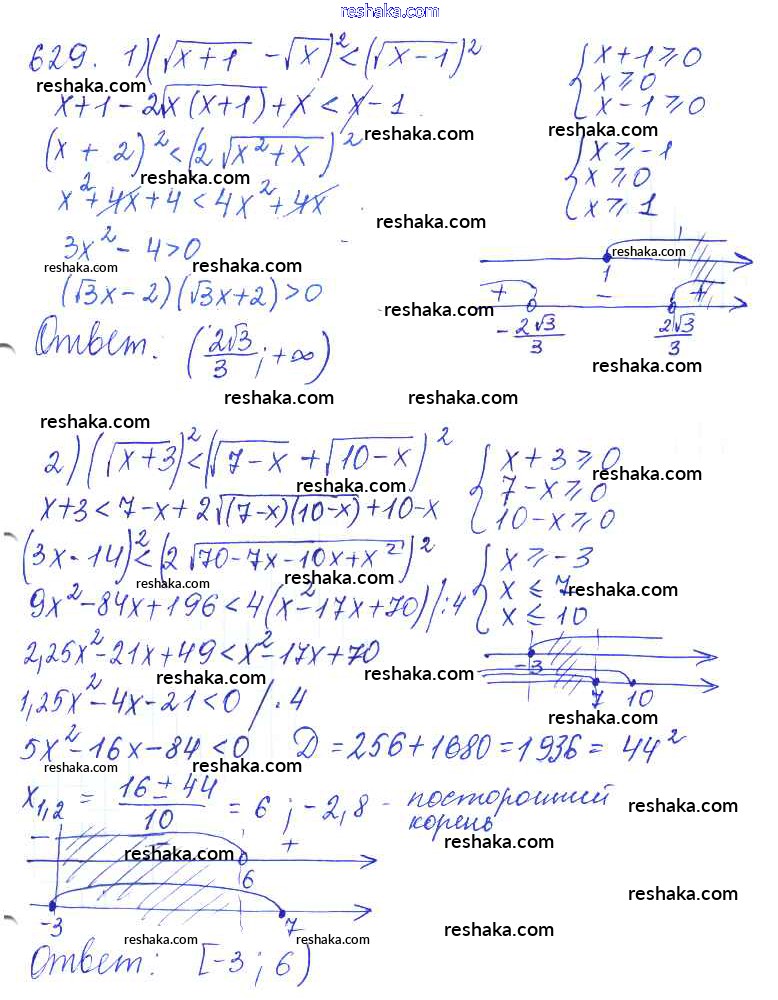 reshaka.com
629. 1) (√(x+1) - √x)² < (√(x-1))²
{ x+1 ⩾ 0
x ⩾ 0
x-1 ⩾ 0
reshaka.com
x+1 - 2√(x(x+1)) + x < x - 1
reshaka.com
reshaka.com
(x + 2)² < (2√(x²+x))²
{ x ⩾ -1
x ⩾ 0
x ⩾ 1
reshaka.com
x² + 4x + 4 < 4x² + 4x
reshaka.com
3x² - 4 > 0
reshaka.com
reshaka.com
reshaka.com
1
(√3x - 2)(√3x + 2) > 0
+ - +
reshaka.com
-2√3/3 2√3/3
Ответ: (2√3/3; +∞)
reshaka.com
reshaka.com
reshaka.com
reshaka.com
2) (√(x+3))² < (√(7-x) + √(10-x))²
{ x+3 ⩾ 0
7-x ⩾ 0
10-x ⩾ 0
reshaka.com
reshaka.com
reshaka.com
x+3 < 7-x + 2√((7-x)(10-x)) + 10-x
(3x - 14)² < (2√(70-7x-10x+x²))²
{ x ⩾ -3
x ⩽ 7
x ⩽ 10
reshaka.com
reshaka.com
reshaka.com
9x² - 84x + 196 < 4(x² - 17x + 70) /:4
2,25x² - 21x + 49 < x² - 17x + 70
reshaka.com
reshaka.com
-3
7 10
1,25x² - 4x - 21 < 0 /·4
reshaka.com
5x² - 16x - 84 < 0 D = 256 + 1680 = 1936 = 44²
reshaka.com
reshaka.com
x1,2 = (16 ± 44)/10 = 6; -2,8 - посторонний
корень
reshaka.com
reshaka.com
reshaka.com
- - +
6
-3 7
reshaka.com
reshaka.com
reshaka.com
reshaka.com
Ответ: [-3; 6)